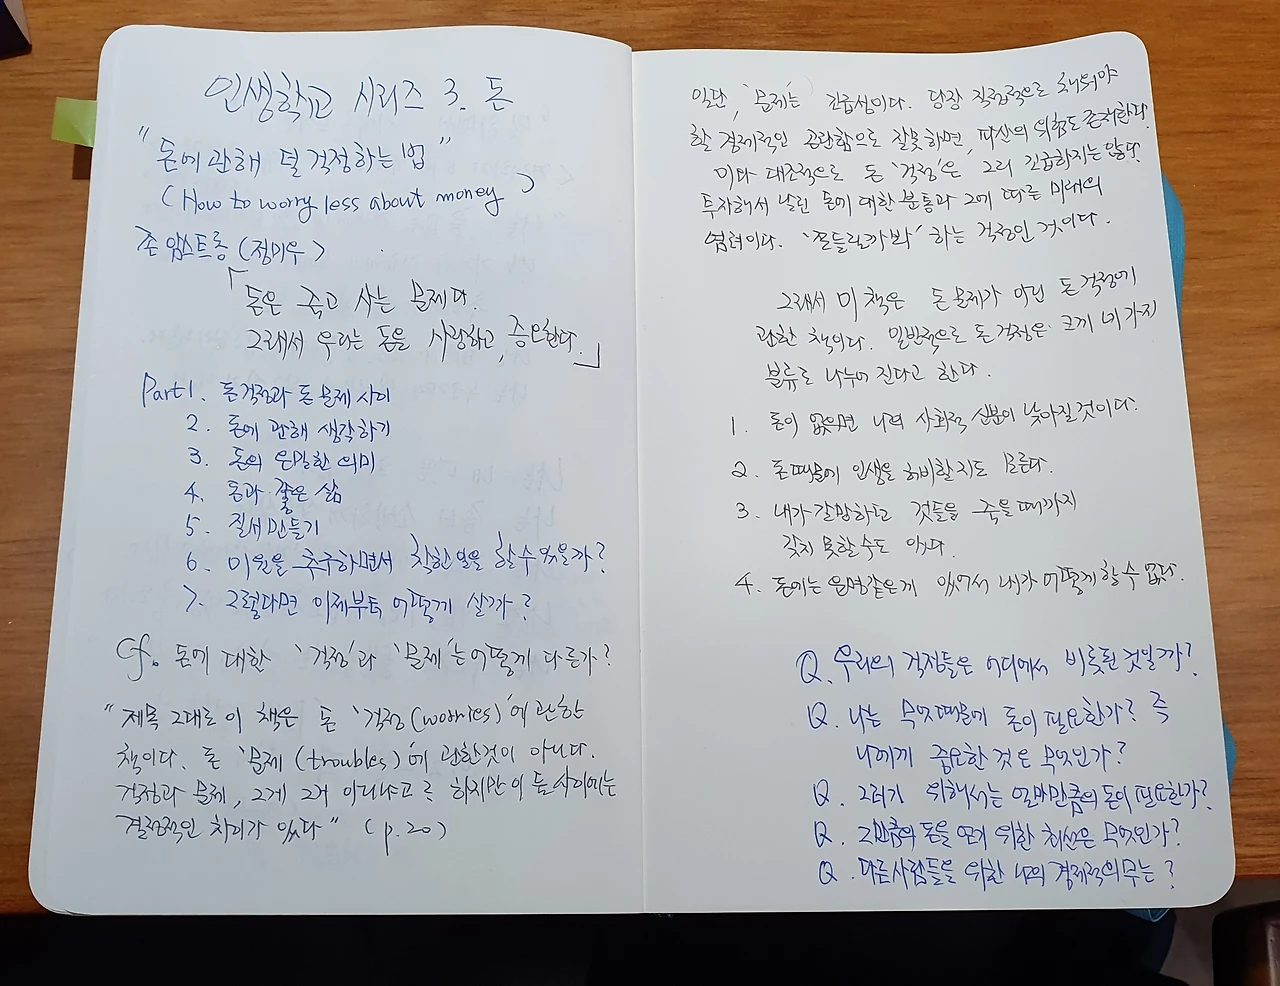 인생학교 시리즈 3. 돈
"돈에 관해 덜 걱정하는 법"
(How to worry less about money)
존 암스트롱 (정미우)
「돈은 죽고 사는 문제다.
그래서 우리는 돈을 사랑하고, 증오한다.」
Part 1. 돈 걱정과 돈 문제 사이
2. 돈에 관해 생각하기
3. 돈의 은밀한 의미
4. 돈과 좋은 삶
5. 질서 만들기
6. 이윤을 추구하면서 착한 일을 할 수 있을까?
7. 그렇다면 이제부터 어떻게 살까?
Cf. 돈에 대한 '걱정'과 '문제'는 어떻게 다른가?
"제목 그대로 이 책은 돈 '걱정(worries)'에 관한
책이다. 돈 '문제(troubles)'에 관한것이 아니다.
걱정과 문제, 그게 그거 아니냐고? 하지만 이 둘 사이에는
결정적인 차이가 있다" (p.20)
일단, '문제'는 긴급성이다. 당장 직접적으로 해결해야
할 경제적인 곤란함으로 잘못하면, 파산의 위험도 존재한다.
이와 대조적으로 돈 '걱정'은 그리 긴급하지는 않다.
투자해서 날린 돈에 대한 분통과 그에 따른 미래의
염려이다. '쪼들릴까봐' 하는 걱정인 것이다.
그래서 이 책은 돈 문제가 아닌 돈 걱정에
관한 책이다. 일반적으로 돈 걱정은 크게 네 가지
분류로 나누어 진다고 한다.
1. 돈이 없으면 나의 사회적 신분이 낮아질 것이다.
2. 돈 때문에 인생을 허비할지도 모른다.
3. 내가 갈망하는 것들을 죽을 때까지
갖지 못할 수도 있다.
4. 돈에는 운명같은게 있어서 내가 어떻게 할 수 없다.
Q. 우리의 걱정들은 어디에서 비롯된 것일까?
Q. 나는 무엇 때문에 돈이 필요한가? 즉
나에게 중요한 것은 무엇인가?
Q. 그러기 위해서는 얼마만큼의 돈이 필요한가?
Q. 그만큼의 돈을 얻기 위한 최선은 무엇인가?
Q. 다른 사람들을 위한 나의 경제적 의무는?